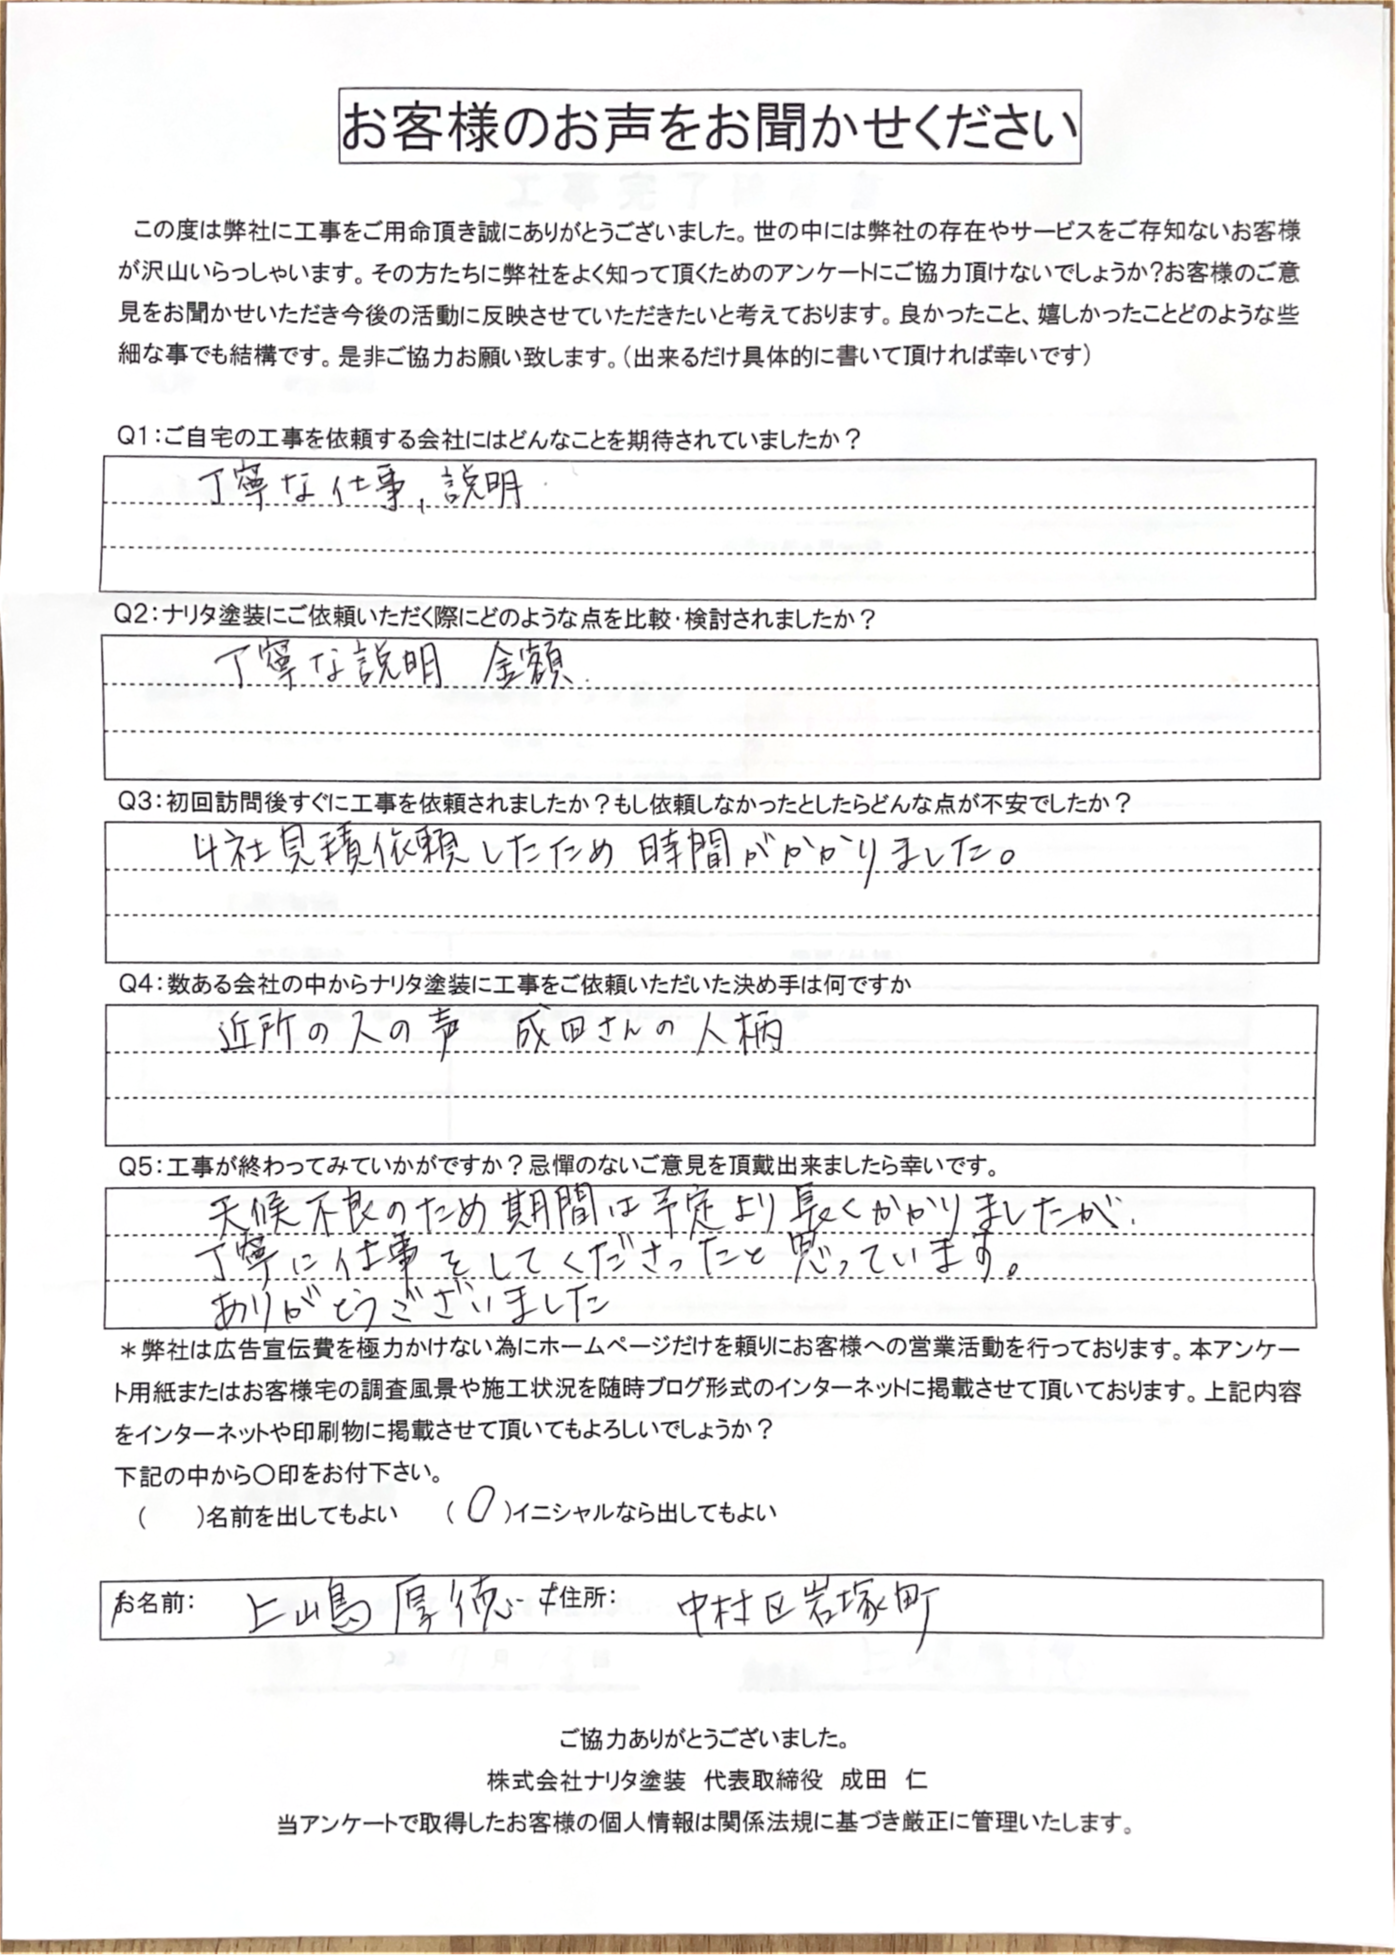 お客様のお声をお聞かせください
この度は弊社に工事をご用命頂き誠にありがとうございました。世の中には弊社の存在やサービスをご存知ないお客様
が沢山いらっしゃいます。その方たちに弊社をよく知って頂くためのアンケートにご協力頂けないでしょうか?お客様のご意
見をお聞かせいただき今後の活動に反映させていただきたいと考えております。良かったこと、嬉しかったことどのような些
細な事でも結構です。是非ご協力お願い致します。(出来るだけ具体的に書いて頂ければ幸いです)
Q1:ご自宅の工事を依頼する会社にはどんなことを期待されていましたか?
丁寧な仕事、説明
Q2:ナリタ塗装にご依頼いただく際にどのような点を比較・検討されましたか?
丁寧な説明 金額.
Q3:初回訪問後すぐに工事を依頼されましたか?もし依頼しなかったとしたらどんな点が不安でしたか?
4社見積依頼したため時間がかかりました。
Q4:数ある会社の中からナリタ塗装に工事をご依頼いただいた決め手は何ですか
近所の人の声 成田さんの人柄
Q5:工事が終わってみていかがですか?忌憚のないご意見を頂戴出来ましたら幸いです。
天候不良のため期間は予定より長くかかりましたが、
丁寧に仕事をしてくださったと思っています。
ありがとうございました
*弊社は広告宣伝費を極力かけない為にホームページだけを頼りにお客様への営業活動を行っております。本アンケー
ト用紙またはお客様宅の調査風景や施工状況を随時ブログ形式のインターネットに掲載させて頂いております。上記内容
をインターネットや印刷物に掲載させて頂いてもよろしいでしょうか?
下記の中から〇印をお付下さい。
( )名前を出してもよい (〇)イニシャルなら出してもよい
お名前: 上山島 厚徳 ご住所: 中村区岩塚町
ご協力ありがとうございました。
株式会社ナリタ塗装 代表取締役 成田 仁
当アンケートで取得したお客様の個人情報は関係法規に基づき厳正に管理いたします。